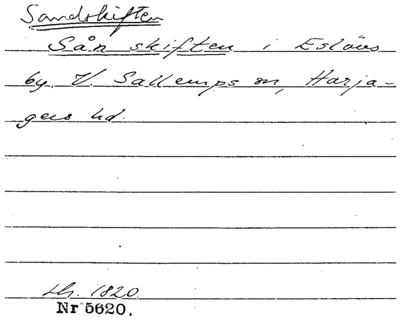 Sandskiften
Sån skiften i Eslövs
by, V. Sallerups sn, Harja-
gers hd.
1820
Nr 5620.